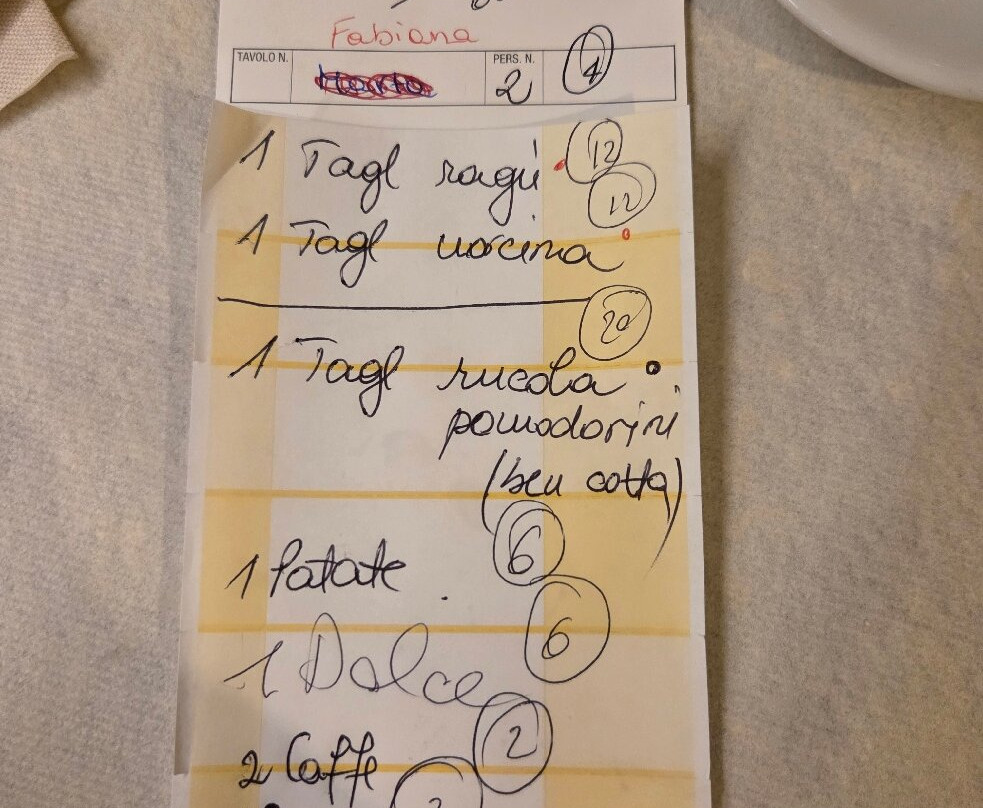 Fabiana
TAVOLO N. PERS. N. 2 4
1 Tagl ragù 12
12
1 Tagl norcina
20
1 Tagl rucola
pomodorini
(ben cotta)
6
1 Patate
6
1 Dolce
2
2 Caffe